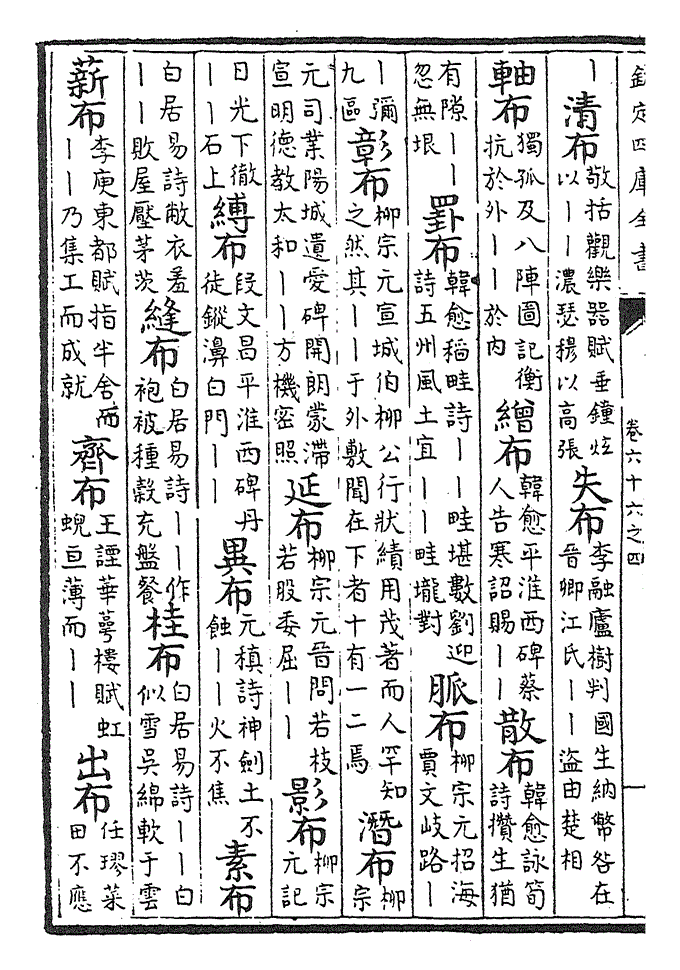 欽定四庫全書 卷六十六之四 一
｜清布敬括觀樂器賦垂鐘炫以｜｜濃瑟穆以高張失布李融廬樹判國生納幣咎在晉卿江氏｜｜盜由楚相
軸布獨孤及八陣圖記衡抗於外｜｜於内繒布韓愈平淮西碑蔡人告寒詔賜｜｜散布韓愈詠筍詩攢生猶
有隙｜｜忽無垠罫布韓愈稻畦詩｜｜畦堪數劉迎詩五州風土宜｜｜畦壠對脈布柳宗元招海賈文岐路｜
｜彌九區彰布柳宗元宣城伯柳公行狀績用茂著而人罕知之然其｜｜于外敷聞在下者十有一二焉潛布柳宗
元司業陽城遺愛碑開朗蒙滯宣明德教太和｜｜方機密照延布柳宗元晉問若枝若股委屈｜｜影布柳宗元記
日光下徹｜｜石上縛布段文昌平淮西碑丹徒鏦濞白門｜｜異布元稹詩神劍土不蝕｜｜火不焦素布
白居易詩敝衣羞｜｜敗屋壓茅茨縫布白居易詩｜｜作袍被種穀充盤餐桂布白居易詩｜｜白似雪吳綿軟于雲
薪布李庾東都賦指半舍而｜｜乃集工而成就齊布王諲華萼樓賦虹蜺亘薄而｜｜出布任璆菜田不應